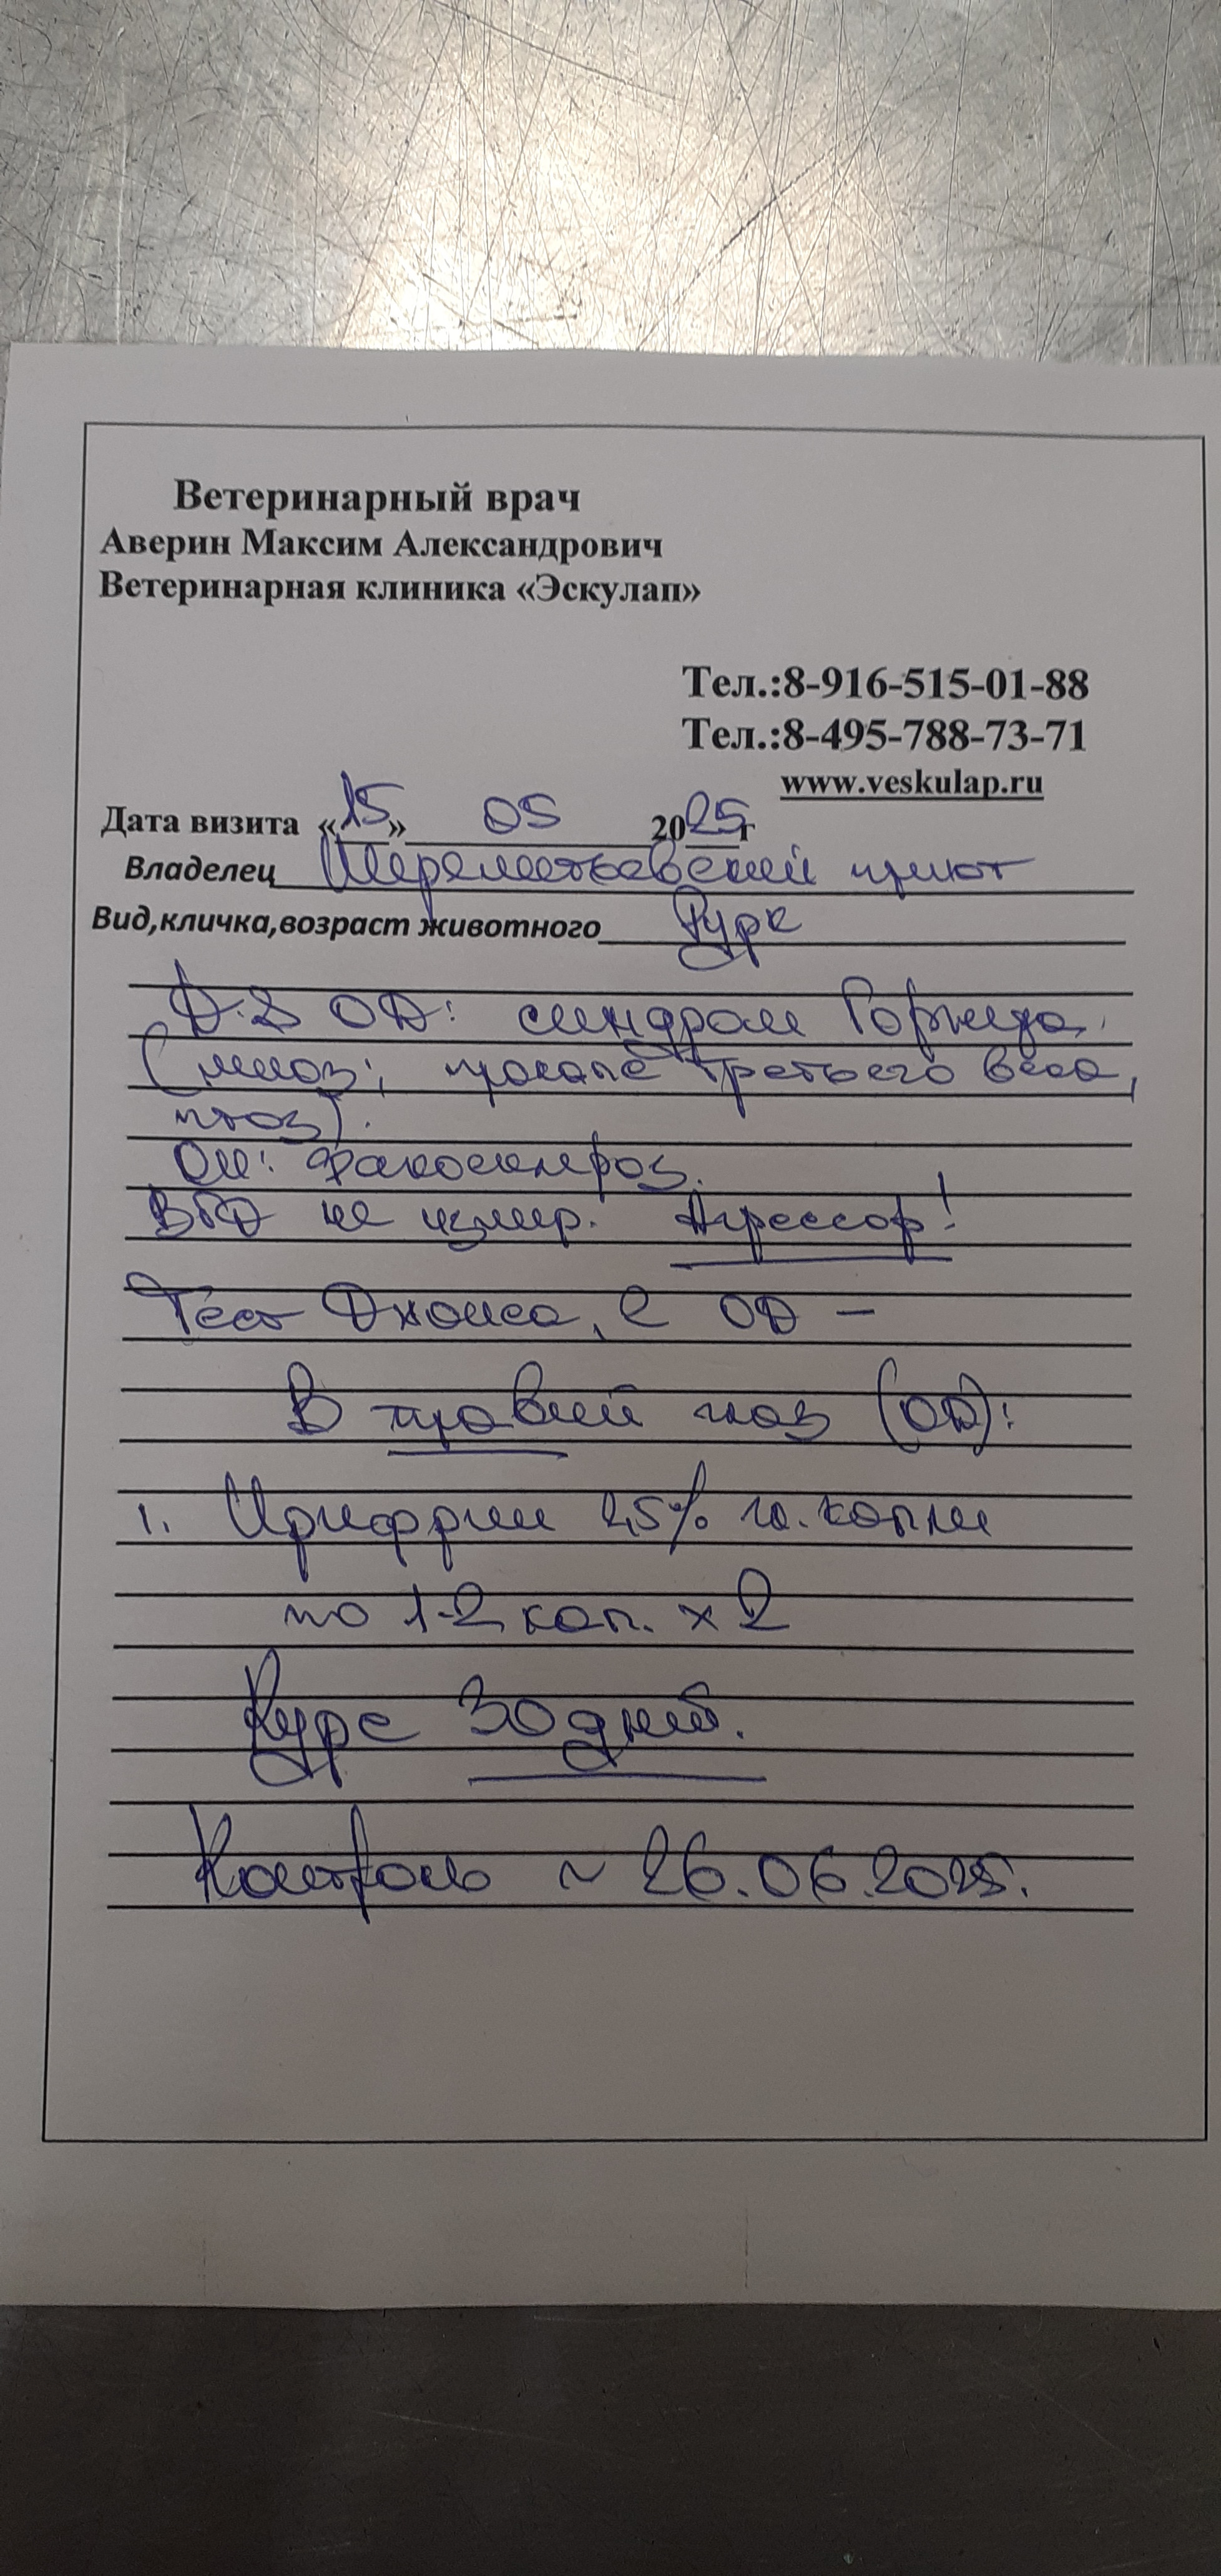 Ветеринарный врач
Аверин Максим Александрович
Ветеринарная клиника «Эскулап»
Тел.:8-916-515-01-88
Тел.:8-495-788-73-71
www.veskulap.ru
Дата визита «15» 05 2025г
Владелец Шереметьевский приют
Вид,кличка,возраст животного Рурк
Д-з OD: синдром Горнера
(миоз, пролапс третьего века,
птоз).
OU: факосклероз.
ВГД не измер. Агрессор!
Тест Джонса, с OD –
В правый глаз (OD):
1. Ирифрин 2,5% гл. капли
по 1-2 кап. x 2
Курс 30 дней.
Контроль ~ 26.06.2025.